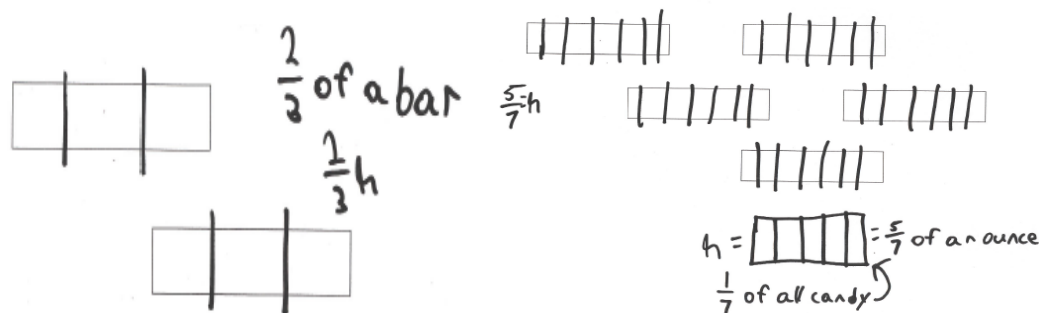 2/3 of a bar
1/3 h
5/7 h
h = = 5/7 of an ounce
1/7 of all candy